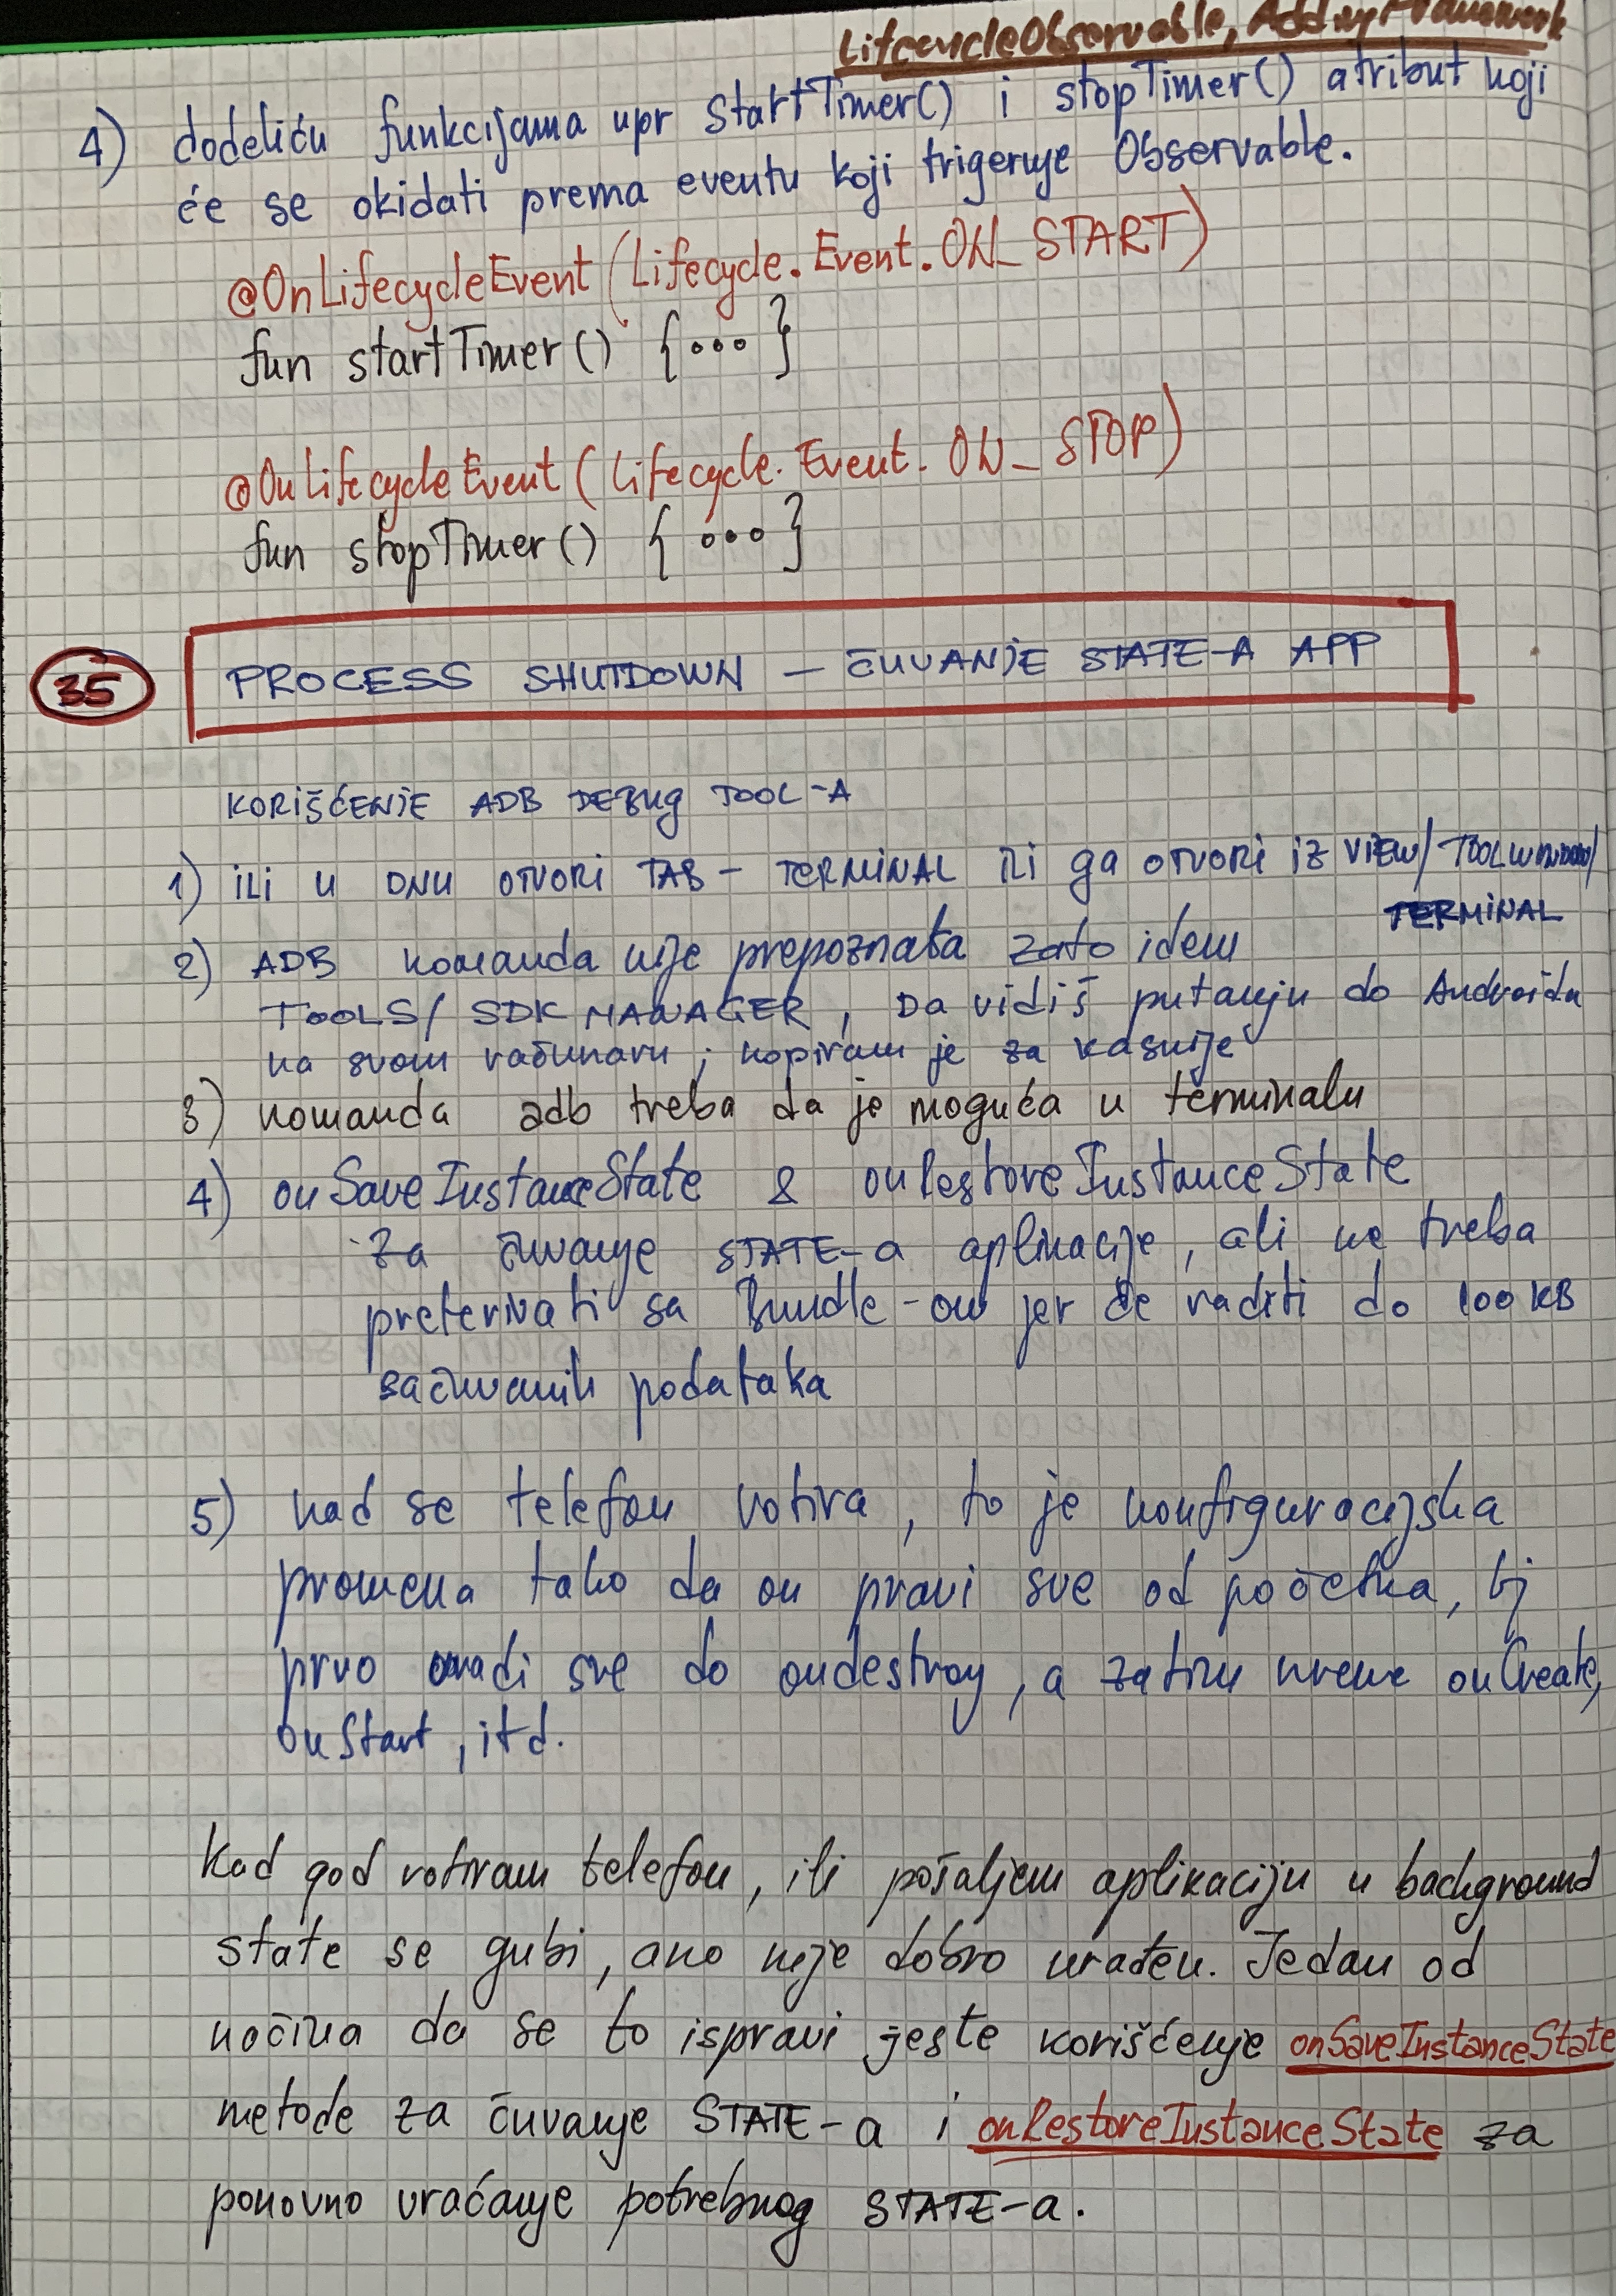 LifecycleObservable,
4) dodeliću funkcijama npr startTimer() i stopTimer() atribut koji
će se okidati prema eventu koji trigeruje Observable.
@OnLifecycleEvent (Lifecycle.Event.ON_START)
fun startTimer() {...}
@OnLifecycleEvent (Lifecycle.Event.ON_STOP)
fun stopTimer() {...}
35 PROCESS SHUTDOWN – ČUVANJE STATE-A APP
KORIŠĆENJE ADB DEBUG TOOL-A
1) ili u DNU OTVORI TAB – TERMINAL ili ga OTVORI iz VIEW/ TOOL WINDOW/
TERMINAL
2) ADB komanda nije prepoznata zato idem
TOOLS/ SDK MANAGER, Da vidiš putanju do Androida
na svom računaru; kopiram je za kasnije
3) komanda adb treba da je moguća u terminalu
4) onSaveInstanceState & onRestoreInstanceState
za čuvanje STATE-a aplikacije, ali ne treba
preterivati sa Bundle-om jer će raditi do 100KB
sačuvanih podataka
5) kad se telefon rotira, to je konfiguracijska
promena tako da on pravi sve od početka, tj
prvo uradi sve do ondestroy, a zatim krene onCreate,
onStart, itd.
Kad god rotiram telefon, ili pošaljem aplikaciju u background
state se gubi, ako nije dobro urađen. Jedan od
načina da se to ispravi jeste korišćenje onSaveInstanceState
metode za čuvanje STATE-a i onRestoreInstanceState za
ponovno vraćanje potrebnog STATE-a.